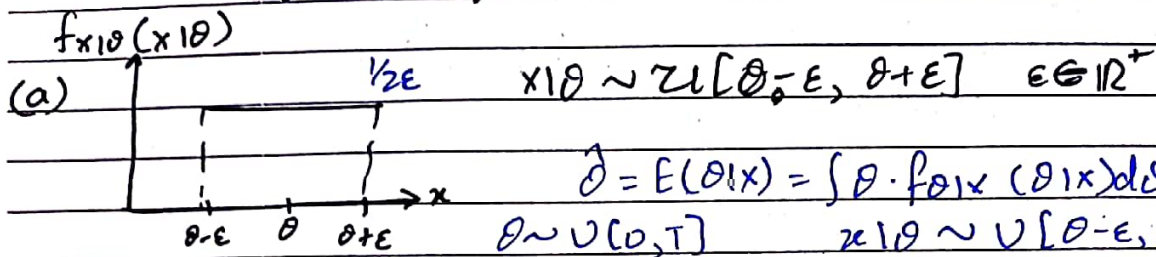 fx|θ(x|θ)
(a) 1/2ε x|θ ~ U[θ-ε, θ+ε] ε∈ℝ⁺
θ̂ = E(θ|x) = ∫θ·fθ|x (θ|x)dθ
x
θ-ε θ θ+ε θ~U[0,T] x|θ ~ U[θ-ε,